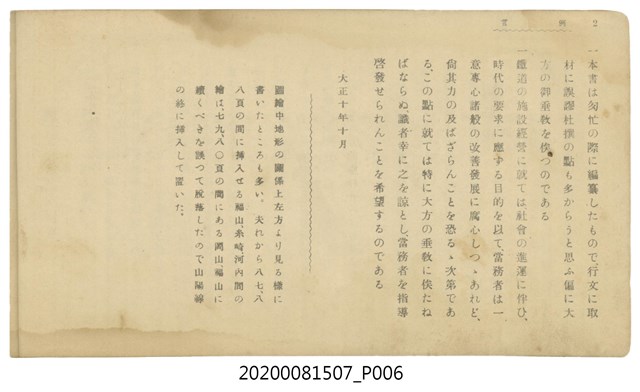 2
一本書は匆忙の際に編纂したもので、行文に取
材に誤謬杜撰の點も多からうと思ふ偏に大
方の御垂敎を俟つのである
一鐵道の施設經營に就ては社會の進運に伴ひ、
時代の要求に應ずる目的を以て、當務者は一
意專心諸般の改善發展に腐心しつゝあれど、
尙其力の及ばざらんことを恐るゝ次第であ
る、この點に就ては特に大方の垂敎に俟たね
ばならぬ、識者幸に之を諒とし、當務者を指導
啓發せられんことを希望するのである
大正十年十月
圖繪中地形の關係上左方より見る樣に
書いたところも多い。夫れから八七、八
八頁の間に挿入せる福山、糸崎、河內間の
繪は、七九、八〇頁の間にある岡山福山に
續くべきを誤つて脫落したので山陽線
の終に挿入して置いた。
20200081507_P006